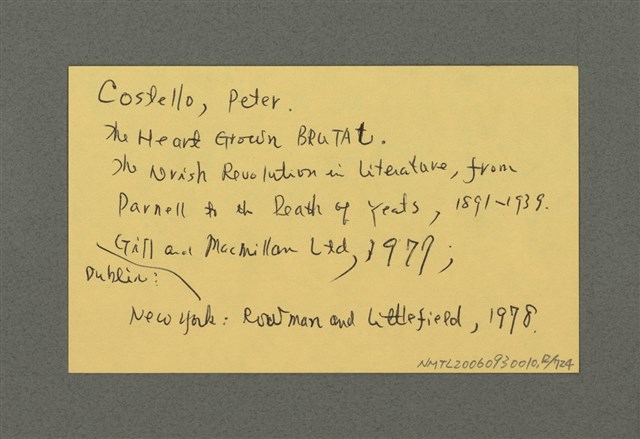 Costello, Peter.
The Heart Grown BRUTAL.
The Irish Revolution in Literature, from
Parnell to the Death of Yeats, 1891-1939.
Gill and Macmillan Ltd, 1977;
Dublin:
New York: Rowman and Littlefield, 1978.